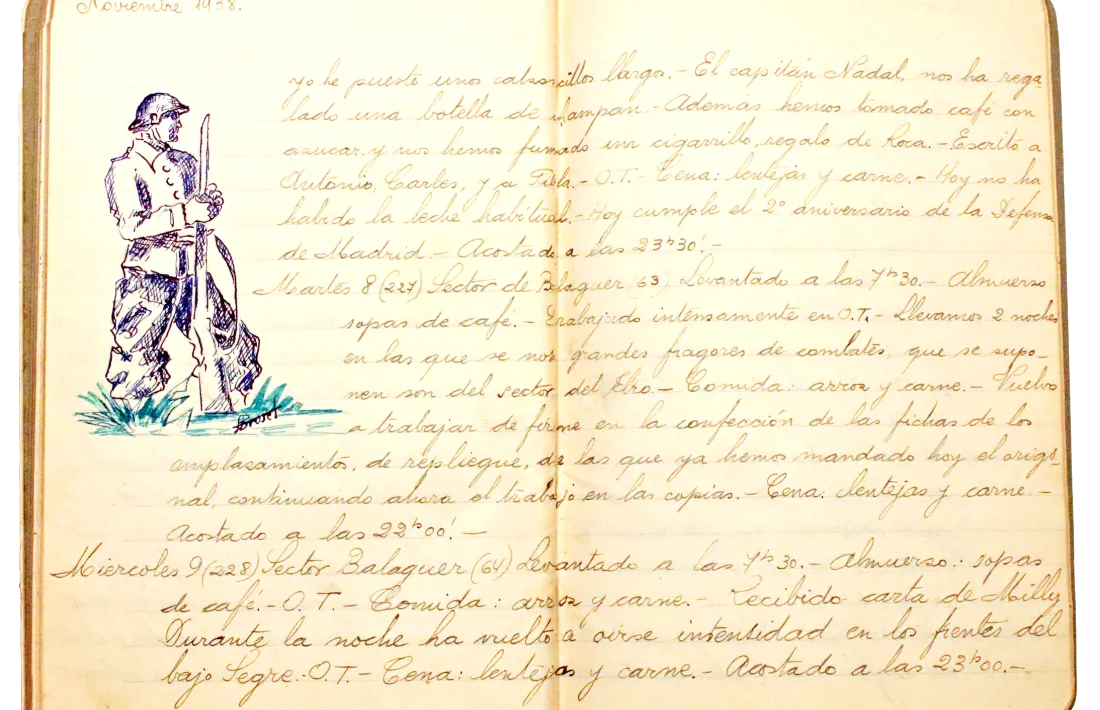 Noviembre 1938.
yo he puesto unos calzoncillos largos. - El capitán Nadal, nos ha rega-
lado una botella de champan. - Además hemos tomado café con
azucar y nos hemos fumado un cigarrillo, regalo de Roca. - Escrito a
Antonio, Carles, y a Fibla. - O.T. - Cena: lentejas y carne. - Hoy no ha
habido la leche habitual. - Hoy cumple el 2º aniversario de la Defensa
de Madrid. - Acostado a las 23ʰ30'. -
Martes 8 (227) Sector de Balaguer (63) Levantado a las 7ʰ30. - Almuerzo
sopas de café. - Trabajado intensamente en O.T. - Llevamos 2 noches
en las que se nos grandes fragores de combates, que se supo-
nen son del sector del Ebro. - Comida: arroz y carne. - Vuelvo
a trabajar de firme en la confección de las fichas de los
emplazamientos, de repliegue, de las que ya hemos mandado hoy el origi-
nal, continuando ahora el trabajo en las copias. - Cena: lentejas y carne. -
Acostado a las 22ʰ00'. -
Miercoles 9 (228) Sector Balaguer (64) Levantado a las 7ʰ30. - Almuerzo: sopas
de café. - O.T. - Comida: arroz y carne. - Recibido carta de Milly
Durante la noche ha vuelto a oirse intensidad en los frentes del
bajo Segre. - O.T. - Cena: lentejas y carne. - Acostado a las 23ʰ00. -